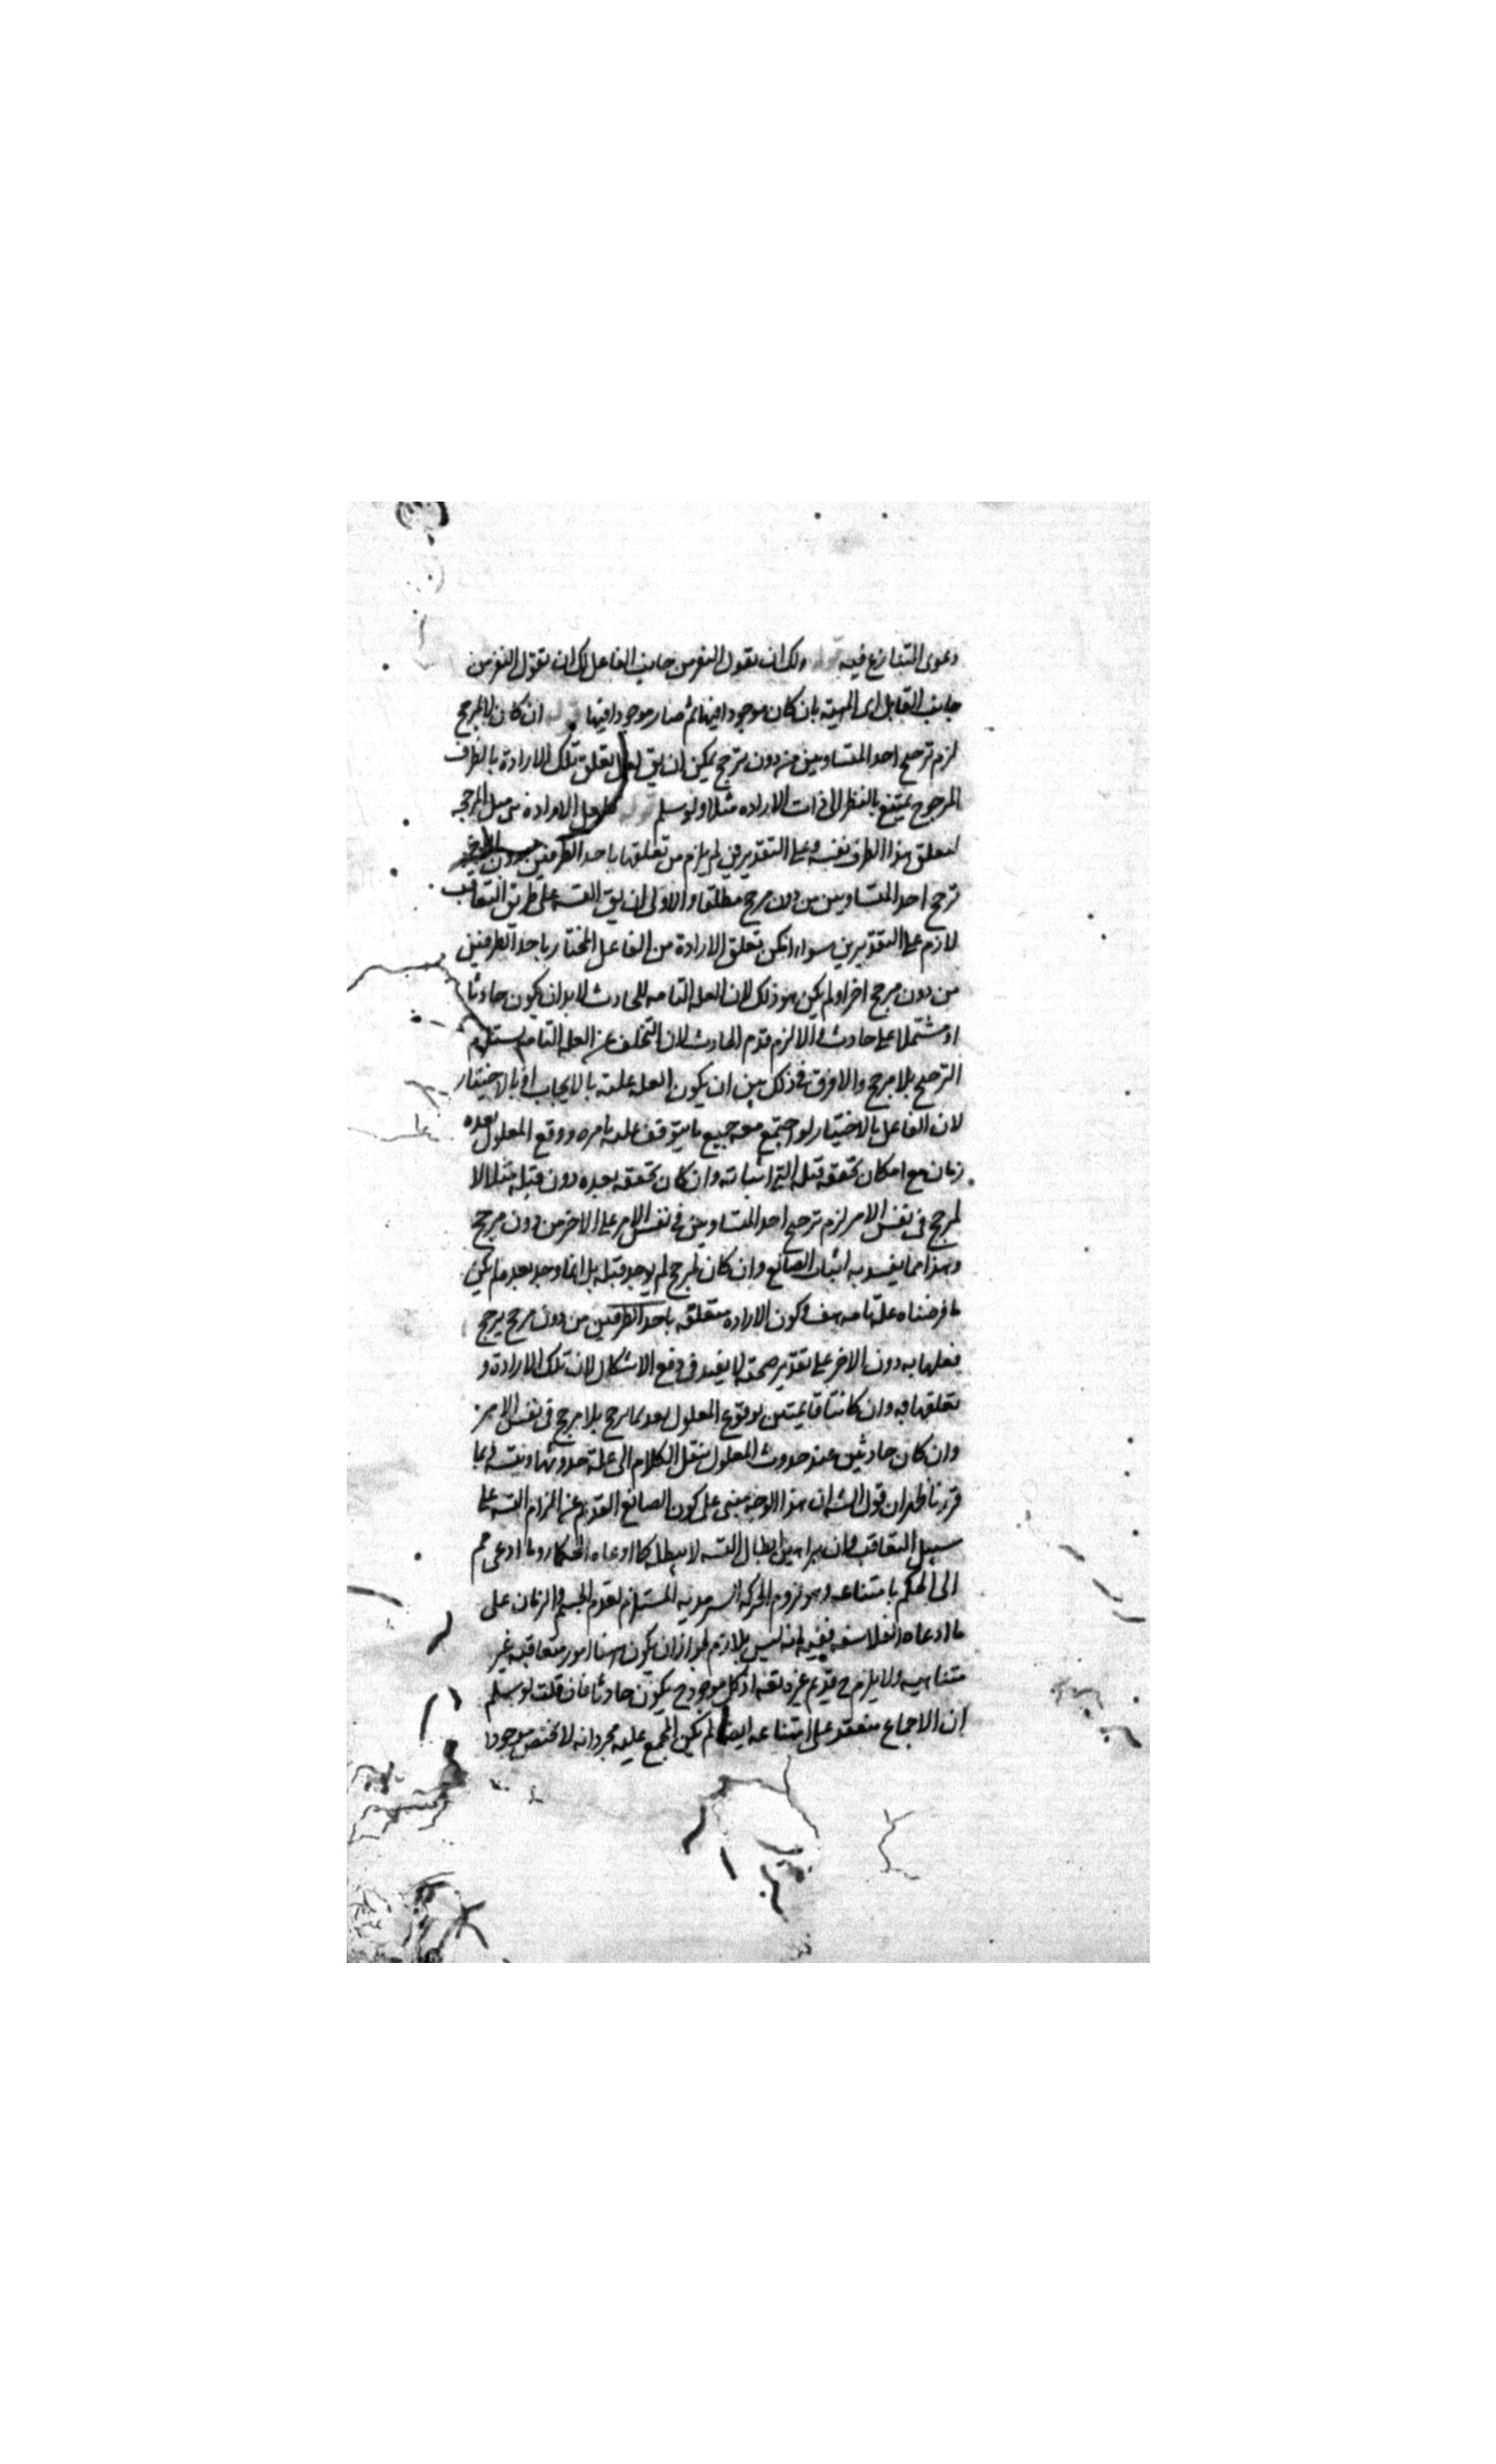 دعوى المتنازع فيه ولك ان تقول النقض من جانب الفاعل لك ان تقول النقض من
جانب القابل اى المهية بان كان موجودا فيها ثم صار موجودا فيها ان كان لا لمرجح
لزم ترجيح احد المتساويين من دون مرجح يمكن ان يق لعل تعلق تلك الارادة بالطرف
المرجوح يمتنع بالنظر الى ذات الاراده مثلا ولو سلم فلعل الاراده من
لتعلق هذا الطرف بنفسه وعلى التقديرين لم يلزم من تعلقها باحد الطرفين دون
ترجح احد المتساويين من دون مرجح مطلقا والاولى ان يق التسه على طريق التعاقب
لازم على التقديرين سواء امكن تعلق الارادة من الفاعل المختار باحد الطرفين
من دون مرجح اخر او لم يكن هو ذلك لان العله التامه للحادث لابد ان يكون حادثا
او مشتملا على حادث والا لزم قدم الحادث لان التخلف عن العله التامه يستلزم
الترجيح بلا مرجح ولا فرق فى ذلك بين ان يكون العله علته بالايجاب او بالاختيار
لان الفاعل بالاختيار لو اجتمع معه جميع ما يتوقف عليه تامره ووقع المعلول بعده
زمان مع امكان تحققه قبله وان كان تحققه بعده دون قبله مثلا لا
لمرجح فى نفس الامر لزم ترجيح احد المتساويين فى نفس الامر على الاخر من دون مرجح
وهذا مما يفسد به اثبات الصانع وان كان لمرجح لم يوجد قبله بل انما وجد بعد ما لم يكن
ما فرضناه علة تامه هف وكون الاراده متعلقه باحد الطرفين من دون مرجح يرجح
فعلها به دون الاخر على تقدير صحته لا يفيد فى دفع الاشكال لان تلك الارادة و
تعلقها به وان كانتا قديمتين فوقوع المعلول بعدهما ترجح بلا مرجح فى نفس الامر
وان كان حادثين عند حدوث المعلول ننقل الكلام الى علة حدوثهما ويتسه فبما
قررنا ظهر ان قول الشه ان هذا الوجه مبنى على كون الصانع القديم عن التزام التسه على
سبيل التعاقب وان براهين ابطال التسه لا يبطله كما ادعاه الحكماء وما ادعى مم
الى الحكم بامتناعه وهو لزوم الحركه السرمديه المستلزم لقدم الجسم والزمان على
ما ادعاه الفلاسفه ففيه انه ليس بلازم لجواز ان يكون هنا امور متعاقبه غير
متناهيه ولا يلزم ح قديم غيره تعه اذ كل موجود ح يكون حادثا فان قلت لو سلم
ان الاجماع منعقد على امتناعه ايضا لم يكن المجمع عليه مجرد انه لا يختص موجودا